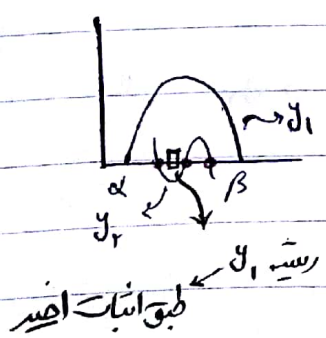 y₁
α
β
y₂
ریشه y₁
طبق اثبات اخیر